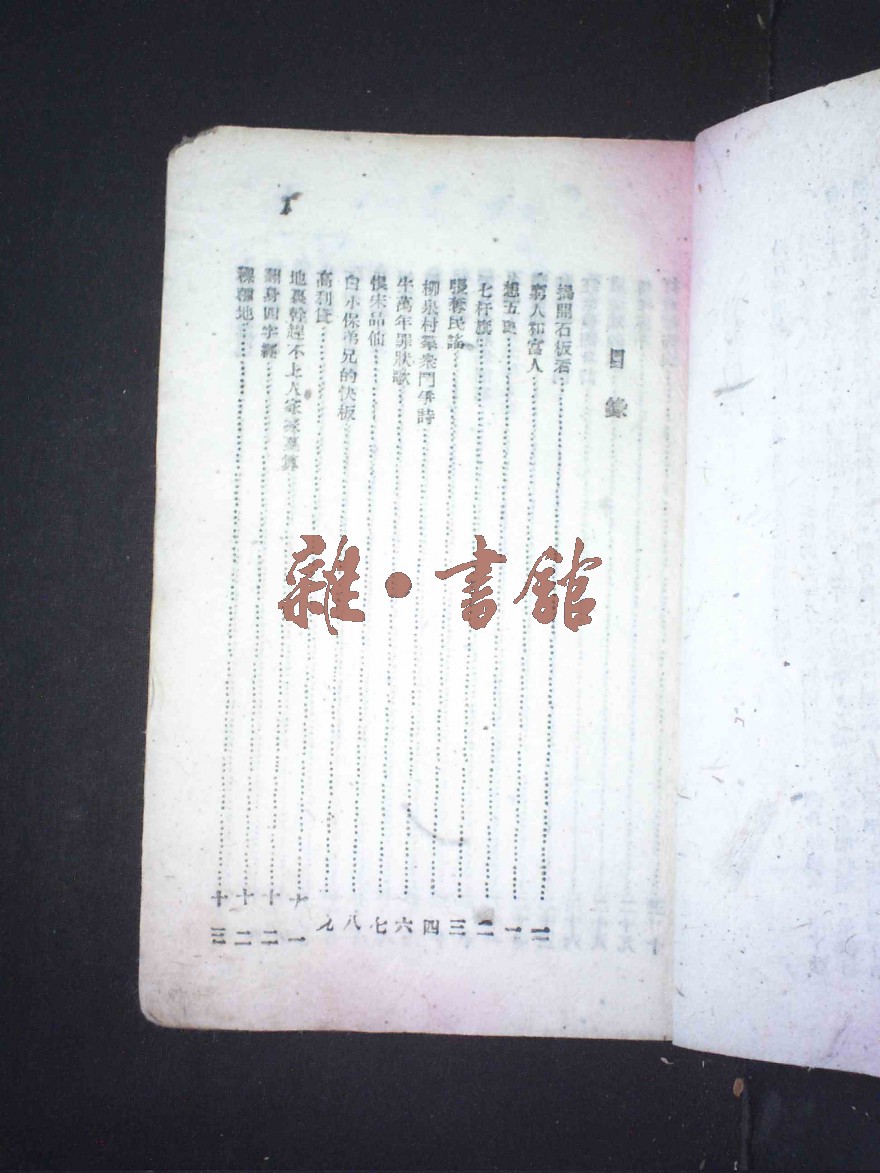 目錄
揭開石板看
窮人和富人
想五更
七杆旗
張奪民謠
柳泉村羣衆鬥爭詩
牛萬年罪狀歌
恨宋品仙
白小保弟兄的快板
高利貸
地裏幹趕不上人家
翻身四字經
裸糧地
一
一
二
三
四
六
七
八
九
十一
十二
十二
十三
雜·書館